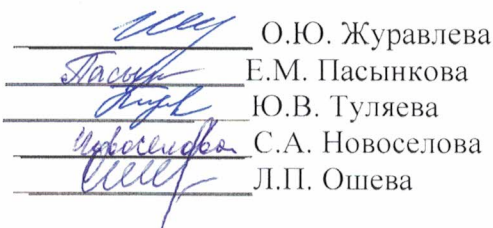 О.Ю. Журавлева
Е.М. Пасынкова
Ю.В. Туляева
Новоселова С.А. Новоселова
Л.П. Ошева